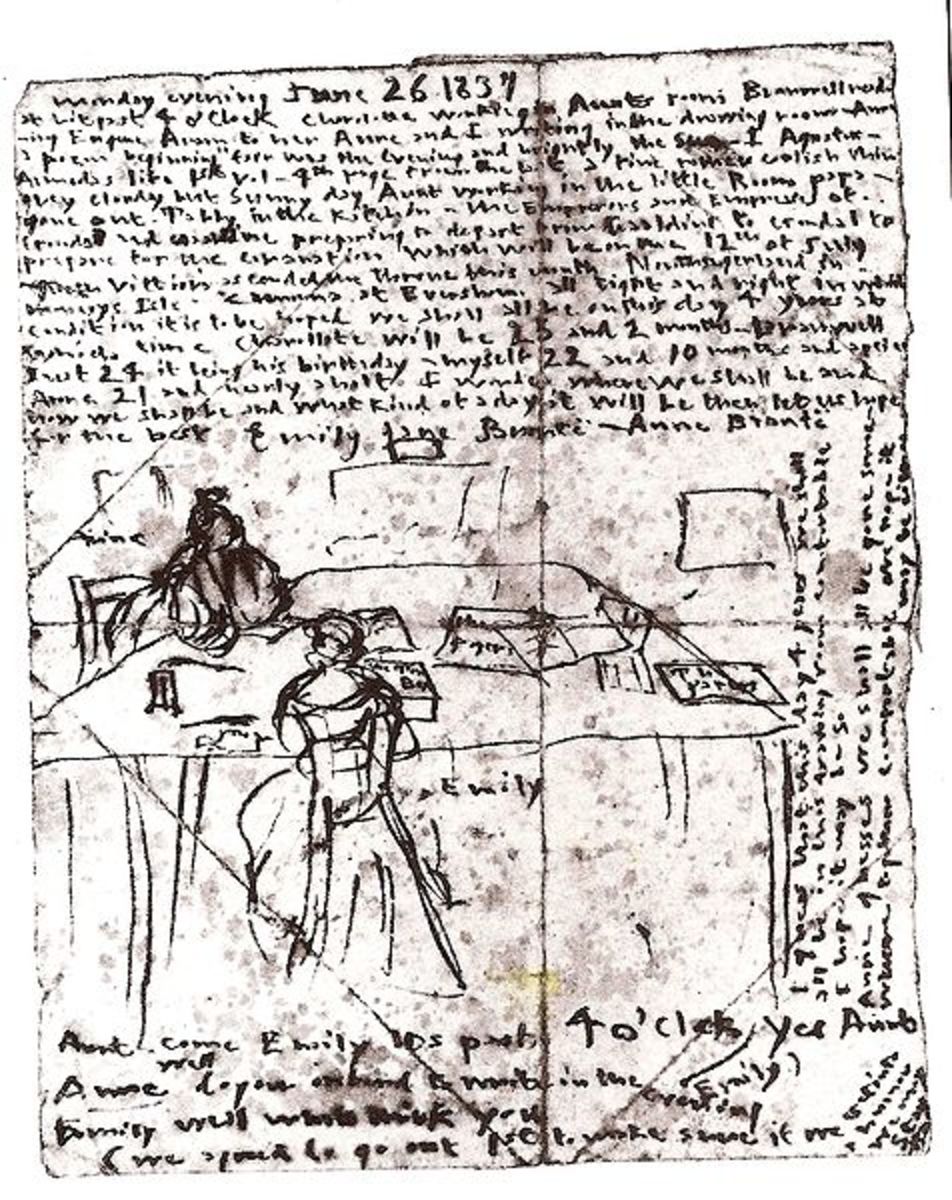 Monday evening June 26 1837
at bit past 4 o'Clock Charlotte working in Aunts room Branwell reading
ing Eugene Aram to her Anne and I writing in the drawing room Anne
a poem beginning fair was the Evening and brightly the Sun I Agustus
Almedas life 1st v. 1 - 4th page from the a fine rather coolish thin
grey cloudy but Sunny day Aunt working in the little Room papa
gone out. Tabby in the Kitchin - the Emperors and Empreses of
and preparing to depart from Gaaldine to
prepare for the coranation which will be on the 12th of July
Vittiora ascended the throne this month. Northangerland in
Monceys Isle - Zamorna at Eversham. all tight and right in which
condition it is to be hoped we shall all be on this day 4 years at
time Charollote will be 25 and 2 months - Branwell
just 24 it being his birthday - myself 22 and 10 months and a peice
Anne 21 and nearly a half I wonder where we shall be and
how we shall be and what kind of a day it will be then let us hope
for the best Emily Jane Bronte - Anne Bronte
I guess that this day 4 years we shall
all be in this drawing room comfortable
I hope it may be so
Anne guesses we shall all be gone some
where together comfortable We hope it
may be
Anne
The
papers
The
Bo
The
papers
Emily
Aunt. come Emily Its past 4 o'Clock, Yes Aunt
Anne well do you intend to write in the evening
Emily
Emily well what think you
(we agreed to go out 1st to make sure if we